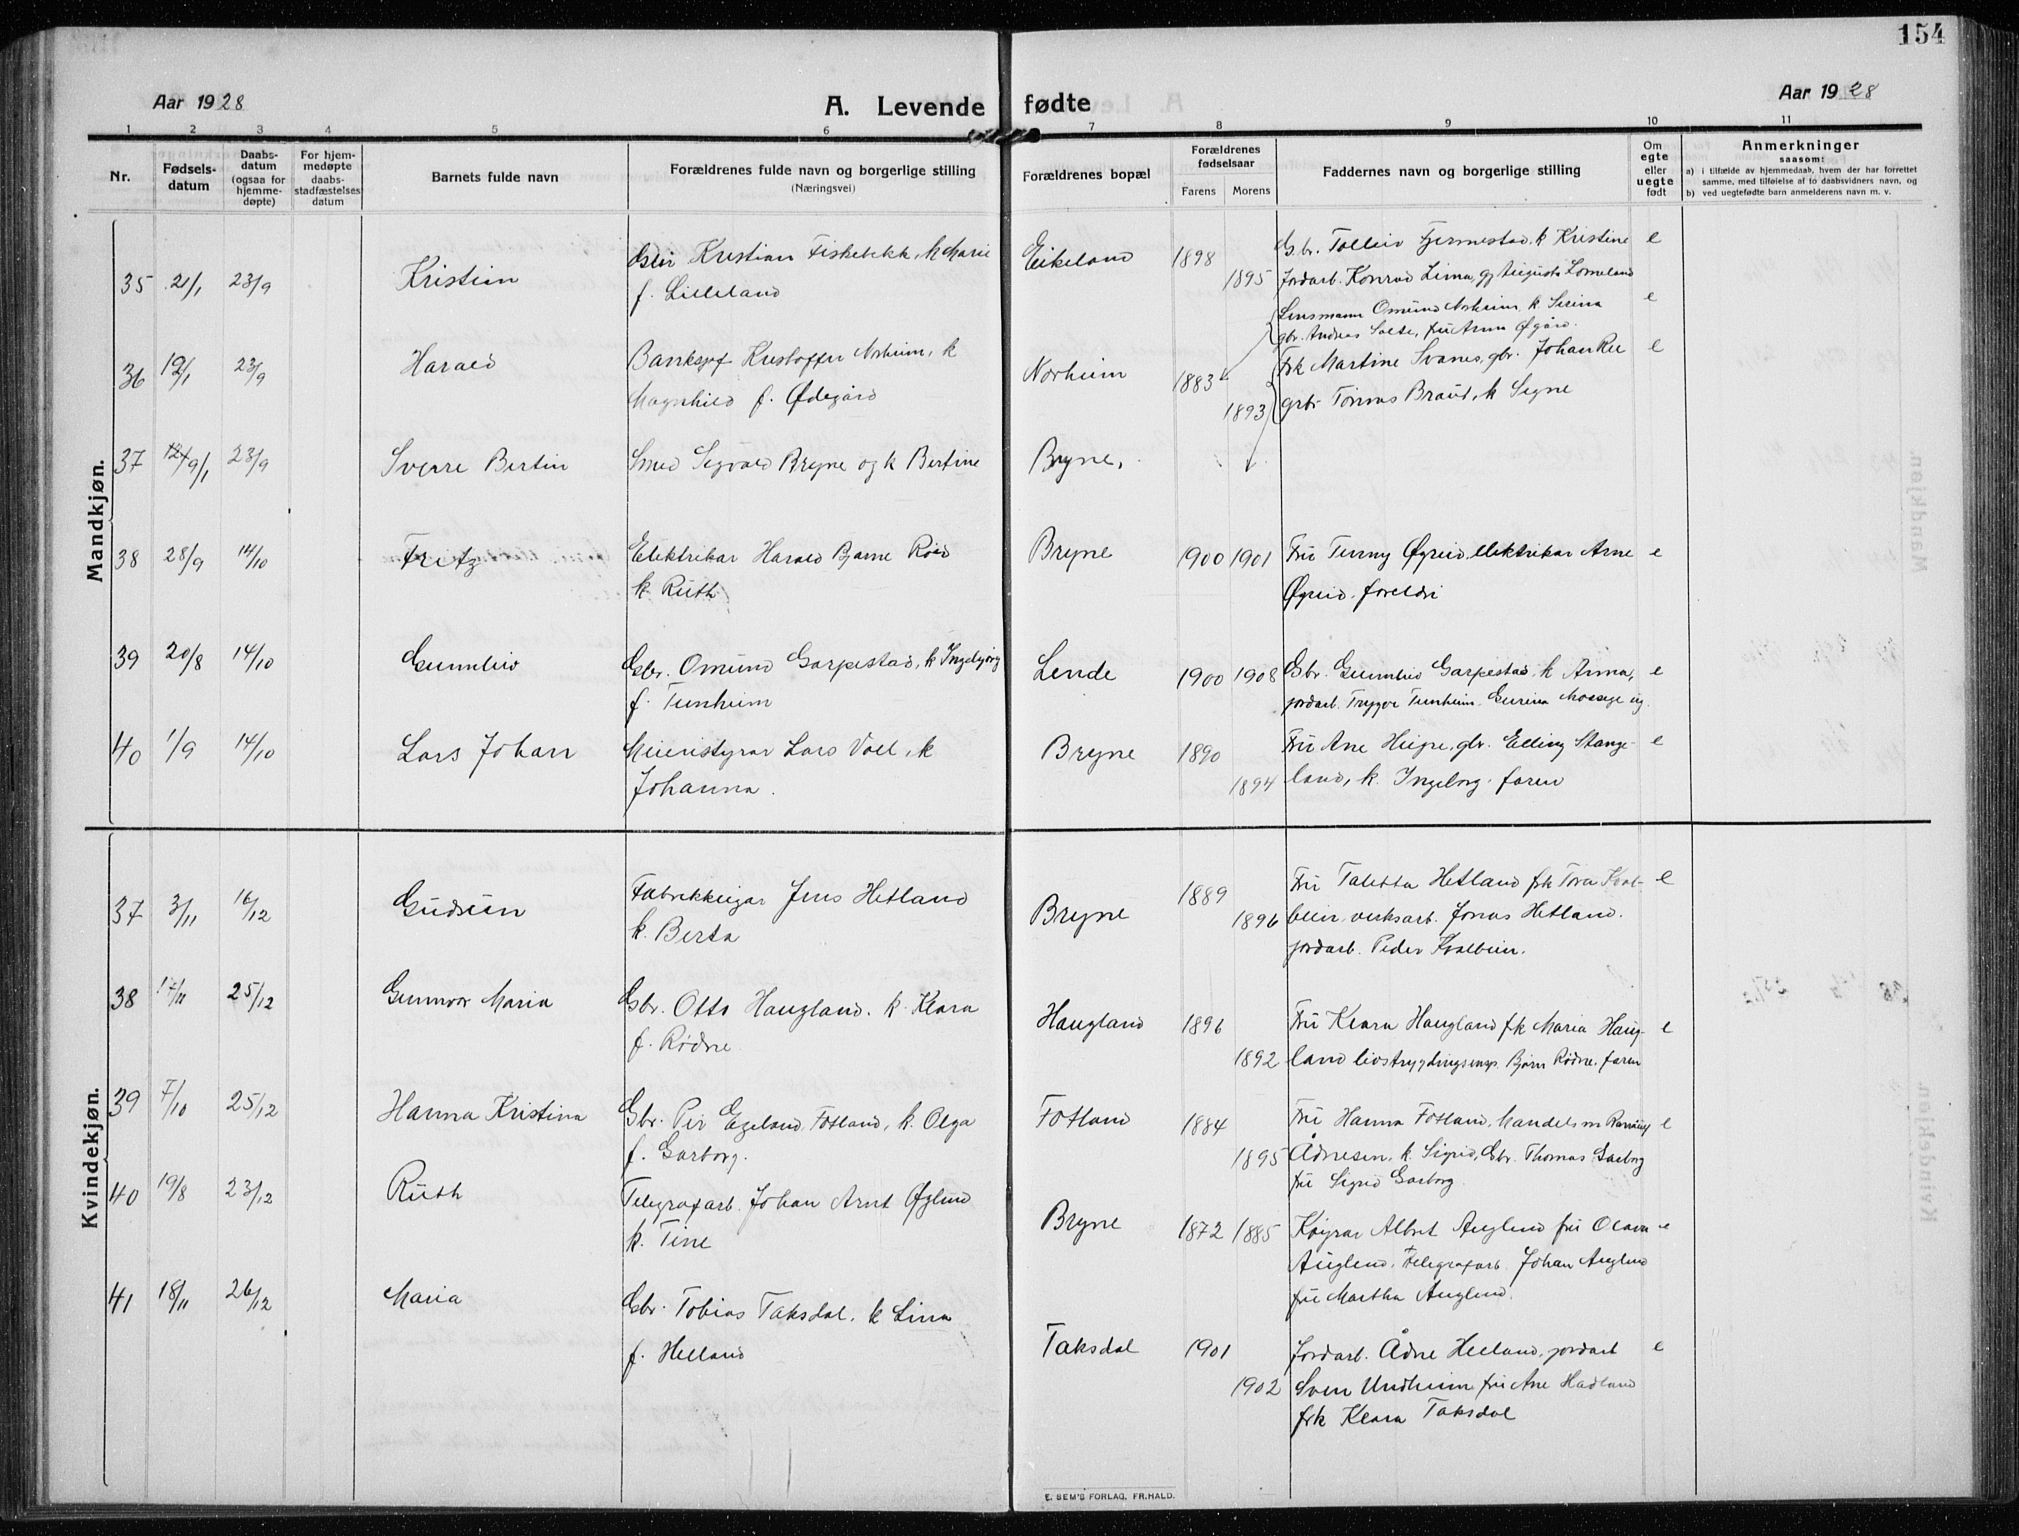 154
Aar 1928
A. Levende fødte
Aar 1928
1 2 3 4 5 6 7 8 9 10 11
Nr.
Fødsels-
datum
Daabs-
datum
(ogsaa for
hjemme-
døpte)
For hjem-
medøpte
daabs-
stadfæstelses
datum
Barnets fulde navn
Forældrenes fulde navn og borgerlige stilling
(Næringsvei)
Forældrenes bopæl
Forældrenes
fødselsaar
Farens Morens
Faddernes navn og borgerlige stilling
Om
egte
eller
uegte
født
Anmerkninger
saasom:
a) i tilfælde av hjemmedaab, hvem der har forrettet
samme, med tilføielse af to daabsvidners navn, og
b) ved uegtefødte barn anmelderens navn m. v.
Mandkjøn.
35 21/1 23/9 Kristian
Gbr Kristian Fiskebekk, k Marie
f. Lilleland
Eikeland 1898 1895
Gbr. Tolleiv Tjermestad, k Kristine e
Jordarb. Konrad Lima, gj Augusta Lomeland
Lensmann Omund Norheim, k Serina e
gbr. Andreas Salte, fru Anna Øgård.
36 12/1 23/9 Harald
Kristoffer Norheim, k
Magnhild f. Ødegård
Norheim 1883 1893
Frk Martine Svanes, gbr. Johan Re e
gbr Tomas Braut, k Signe
37 9/1 23/9 Sverre Bertin
Smed Sigvald Bryne og k Bertine
Bryne.
38 28/9 14/10 Fritz
Elektrikar Harald Bjarne Röed
k. Ruth
Bryne 1900 1901
Fru Tenny Øgreid, elektrikar Arne e
Øgreid. foreldri
39 20/8 14/10 Gunnleiv
Gbr. Omund Garpestad, k Ingebjørg
f. Tunheim
Lende 1900 1908
Gbr. Gunnleiv Garpestad, k Anna, e
jordarb. Trygve Tunheim. Gurina Mossige ug.
40 1/9 14/10 Lars Johan
Meieristyrar Lars Voll, k
Johanna.
Bryne 1890 1894
Fru Ane Higre, gbr. Elling Stange- e
land, k. Ingeborg. faren
Kvindekjøn.
37 3/11 16/12 Gudrun
Fabrikkeigar Jens Hetland
k. Berta
Bryne 1889 1896
Fru Taletta Hetland frk Tora Kval- e
bein, verksarb. Jonas Hetland.
jordarb. Peder Kvalbein.
38 17/11 25/12 Gunnvor Maria
Gbr. Otto Haugland. k. Klara
f. Rødne
Haugland 1896 1892
Fru Klara Haugland fk Maria Haug- e
land Bjørn Rødne. faren
39 7/10 25/12 Hanna Kristina
Gbr. Per Egeland, Fotland, k. Olga
f. Garborg.
Fotland 1884 1895
Fru Hanna Fotland, handelsm e
Ådnesen, k. Sigrid, Gbr. Thomas Garborg
fru Sigrid Garborg.
40 19/8 23/12 Ruth
Telegrafarb. Johan Arnt Øglend
k. Tine
Bryne 1872 1885
Køyrar Albret Auglend fru Olava e
Auglend. Telegrafarb. Johan Auglend
fru Martha Auglend.
41 18/11 26/12 Maria
Gbr. Tobias Taksdal. k Lina
f. Helland
Taksdal 1901 1902
Jordarb. Ådne Helland, jordarb e
Sven Undheim fru Ane Hadland
frk Klara Taksdal
E. SEM'S FORLAG, FR.HALD.